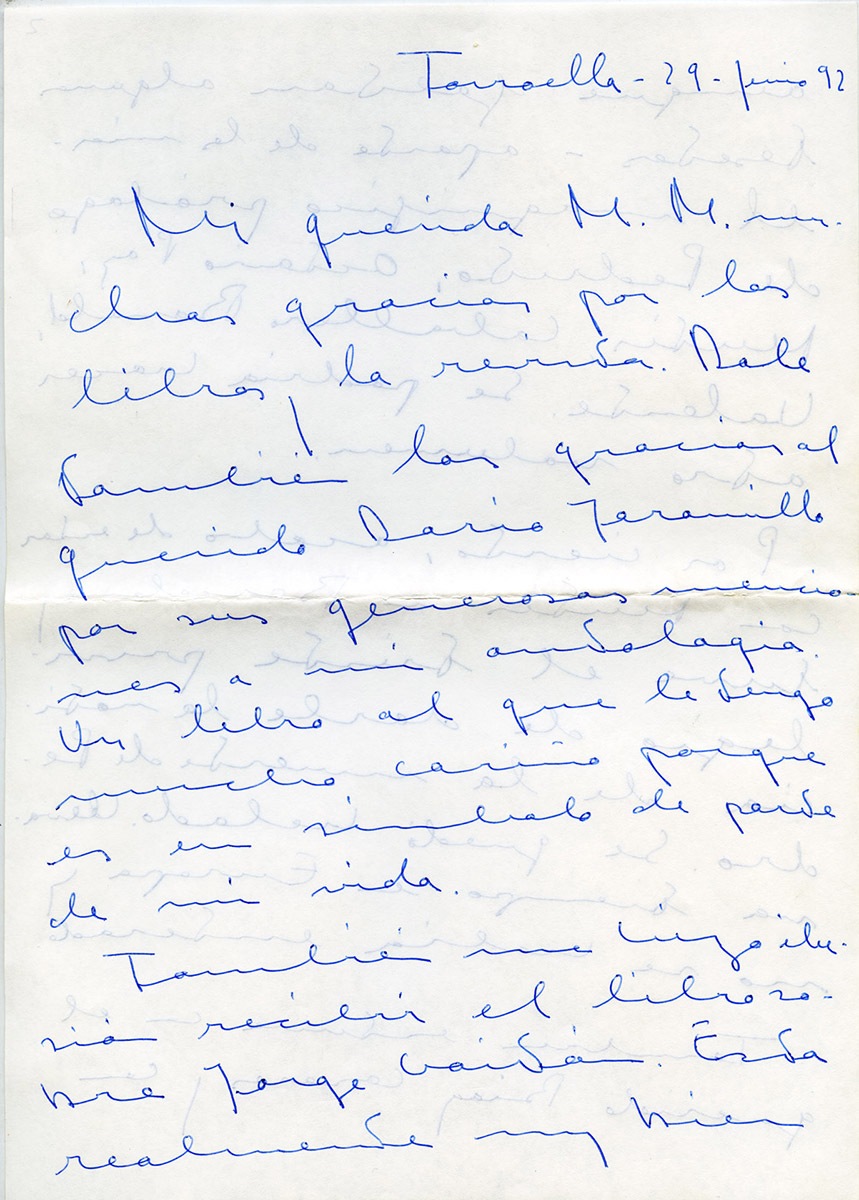 Torroella - 29 - junio 92
Mi querida M. M. mu-
chas gracias por los
libros y la revista. Dale
también las gracias al
querido Dario Jaramillo
por sus generosas mencio-
nes a mi antologia.
Un libro al que le tengo
mucho cariño porque
es un simbolo de parte
de mi vida.
También me hizo ilu-
sión recibir el libro so-
bre Jorge Gaitán. Está
realmente muy bien